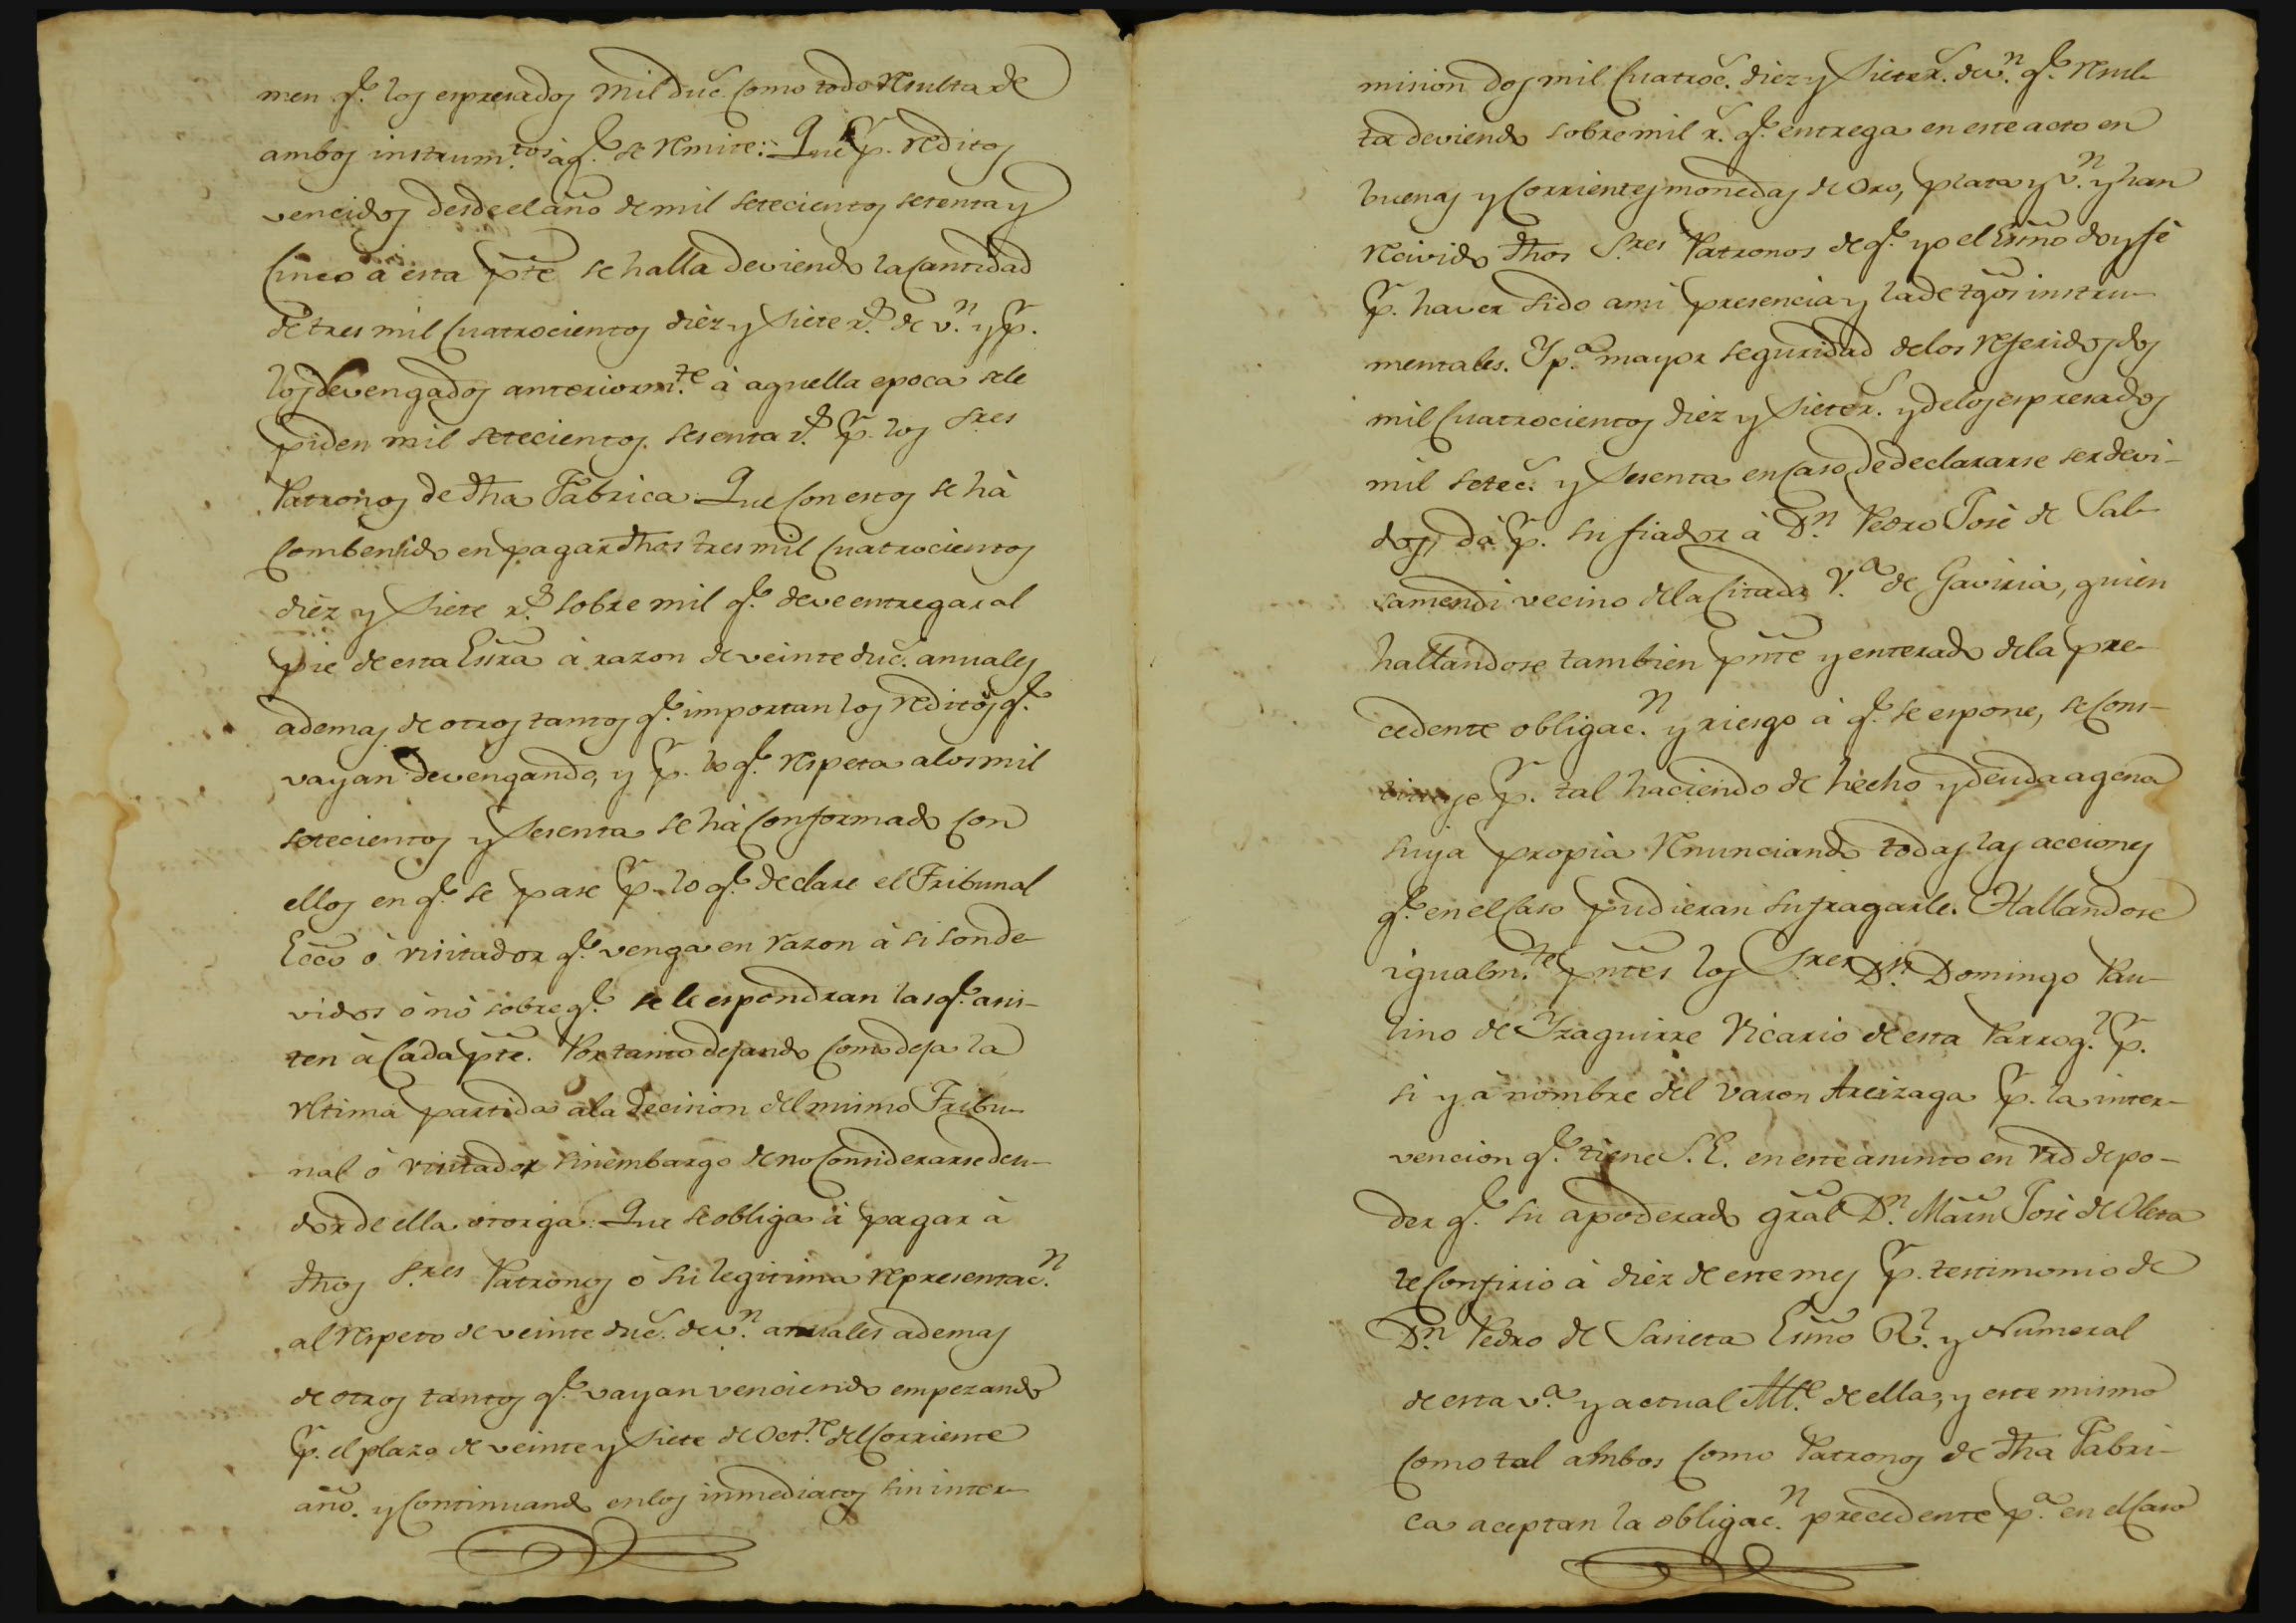 men q.e los espresados mil duc.s como todo resulta de
ambos instrum.tos à q.e se remite: Que p.r reditos
vencidos desde el año de mil setecientos setenta y
Cinco à esta pte se halla deviendo la Cantidad
de tres mil Cuatrocientos diez y siete r.s de v.n y p.r
los devengados anteriorm.te à aquella epoca se le
piden mil setecientos sesenta r.s p.r los S.res
Patronos de dha Fabrica: Que Con estos se hà
Combenido en pagar dhos tres mil Cuatrocientos
diez y siete r.s sobre mil q.e deve entregar al
pie de esta Essra à razon de veinte duc.s anuales
ademas de otros tantos q.e importan los reditos q.e
vayan devengando, y p.r lo q.e respeta a los mil
setecientos y sesenta se hà Conformado Con
ellos en q.e se pase p.r lo q.e declare el Tribunal
Ecco ò visitador q.e venga en razon à si son de-
vidos ò nò sobre q.e se le espondran las q.e asis-
ten à Cada pte. Por tanto dejando Como deja la
ultima partida a la Decision del mismo Tribu-
nal ò visitador sin embargo de no Considerarse deu-
dor de ella otorga: Que se obliga à pagar à
dhos S.res Patronos ò su legitima representac.n
al respeto de veinte duc.s de v.n anuales ademas
de otros tantos q.e vayan venciendo empezando
p.r el plazo de veinte y siete de Oct.re del Corriente
año. y Continuando en los inmediatos sin inter-
mision dos mil Cuatroc.s diez y siete r.s de v.n q.e resul-
ta deviendo sobre mil r.s q.e entrega en este acto en
buenas y Corrientes monedas de Oro, plata y v.n y han
recivido dhos S.res Patronos de q.e yo el Essno doy fè
p.r haver sido a mi presencia y la de tgos instru-
mentales. Y p.a mayor seguridad de los referidos dos
mil Cuatrocientos diez y siete r.s y de los espresados
mil setec.s y sesenta en Caso de declararse ser devi-
dos, dà p.r su fiador à D.n Pedro José de Sal-
samendi vecino de la Citada V.a de Gaviria, quien
hallandose tambien pnte y enterado de la pre-
cedente obligac.n y riesgo à q.e se espone, se Cons-
tituye p.r tal haciendo de hecho y deuda agena
suya propia renunciando todas las acciones
q.e en el Caso pudieran sufragarle. Hallandose
igualm.te pntes los Sres D.n Domingo Pau-
lino de Yzaguirre Vicario de esta Parroq.l p.r
si y à nombre del Varon Areizaga p.r la inter-
vencion q.e tiene S.E. en este asunto en vrd de po-
der q.e su apoderado gral D.n Marn José de Oleta
le Confirio à diez de este mes p.r testimonio de
D.n Pedro de Sarieta Essno R.l y Numeral
de esta v.a y actual Alc.e de ella, y este mismo
Como tal ambos Como Patronos de dha Fabri-
ca aceptan la obligac.n precedente p.a en el Caso